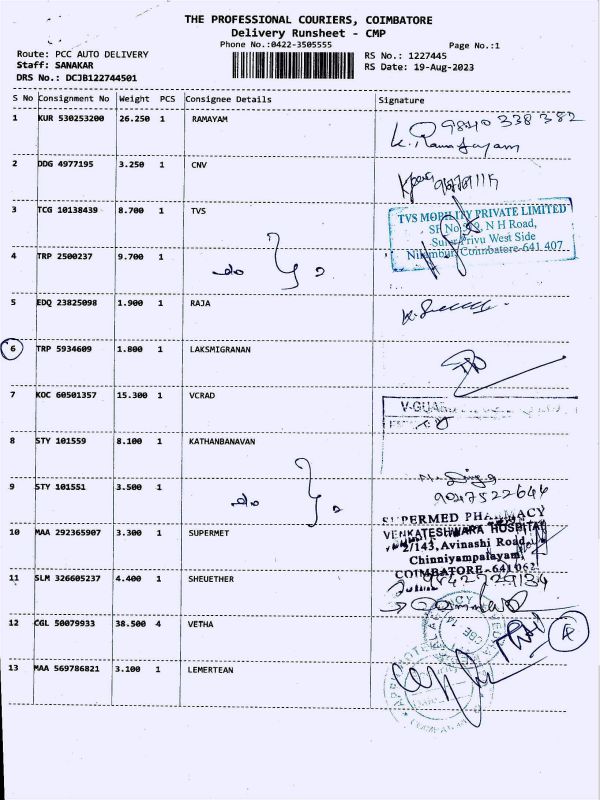 THE PROFESSIONAL COURIERS, COIMBATORE
Delivery Runsheet - CMP
Phone No.:0422-3505555
Page No.:1
Route: PCC AUTO DELIVERY
RS No.: 1227445
Staff: SANAKAR
RS Date: 19-Aug-2023
DRS No.: DCJB122744501
S No Consignment No Weight PCS Consignee Details Signature
1 KUR 530253200 26.250 1 RAMAYAM
9840 338 382
2 DDG 4977195 3.250 1 CNV
3 TCG 10138439 8.700 1 TVS
TVS MOBILITY PRIVATE LIMITED
N H Road,
West Side
Coimbatore-641 407
4 TRP 2500237 9.700 1
5 EDQ 23825098 1.900 1 RAJA
6 TRP 5934609 1.800 1 LAKSMIGRANAN
7 KOC 60501357 15.300 1 VCRAD
V-GUA
8 STY 101559 8.100 1 KATHANBANAVAN
9 STY 101551 3.500 1
9047522644
SUPERMED PHARMACY
10 MAA 292365907 3.300 1 SUPERMET
VENKATESHWARA HOSPITAL
2/143, Avinashi Road,
Chinniyampalayam,
COIMBATORE-641062
11 SLM 326605237 4.400 1 SHEUETHER
12 CGL 50079933 38.500 4 VETHA
4
13 MAA 569786821 3.100 1 LEMERTEAN